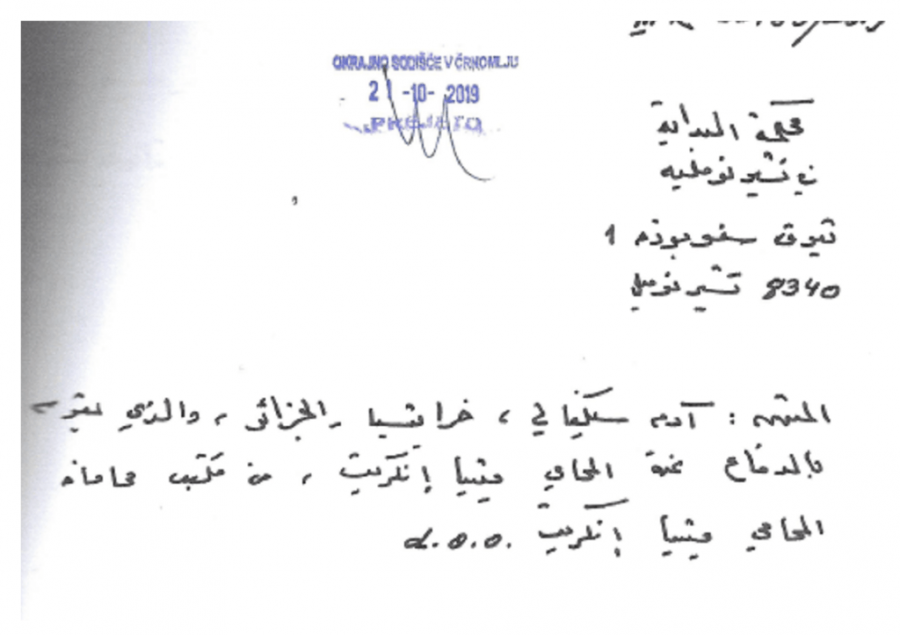 OKRAJNO SODIŠČE V ČRNOMLJU
21 -10- 2019
PREJETO
محكمة البداية
في تشيرنومليه
تريق سفوبوده 1
8340 تشيرنوملي
المتهم : آدم سكيفالي ، خرايسيا - الجزائر ، والذي يقوم
بالدفاع عنه المحامي ميتيا إنكريت ، من مكتب محاماة
المحامي ميتيا إنكريت d.o.o.